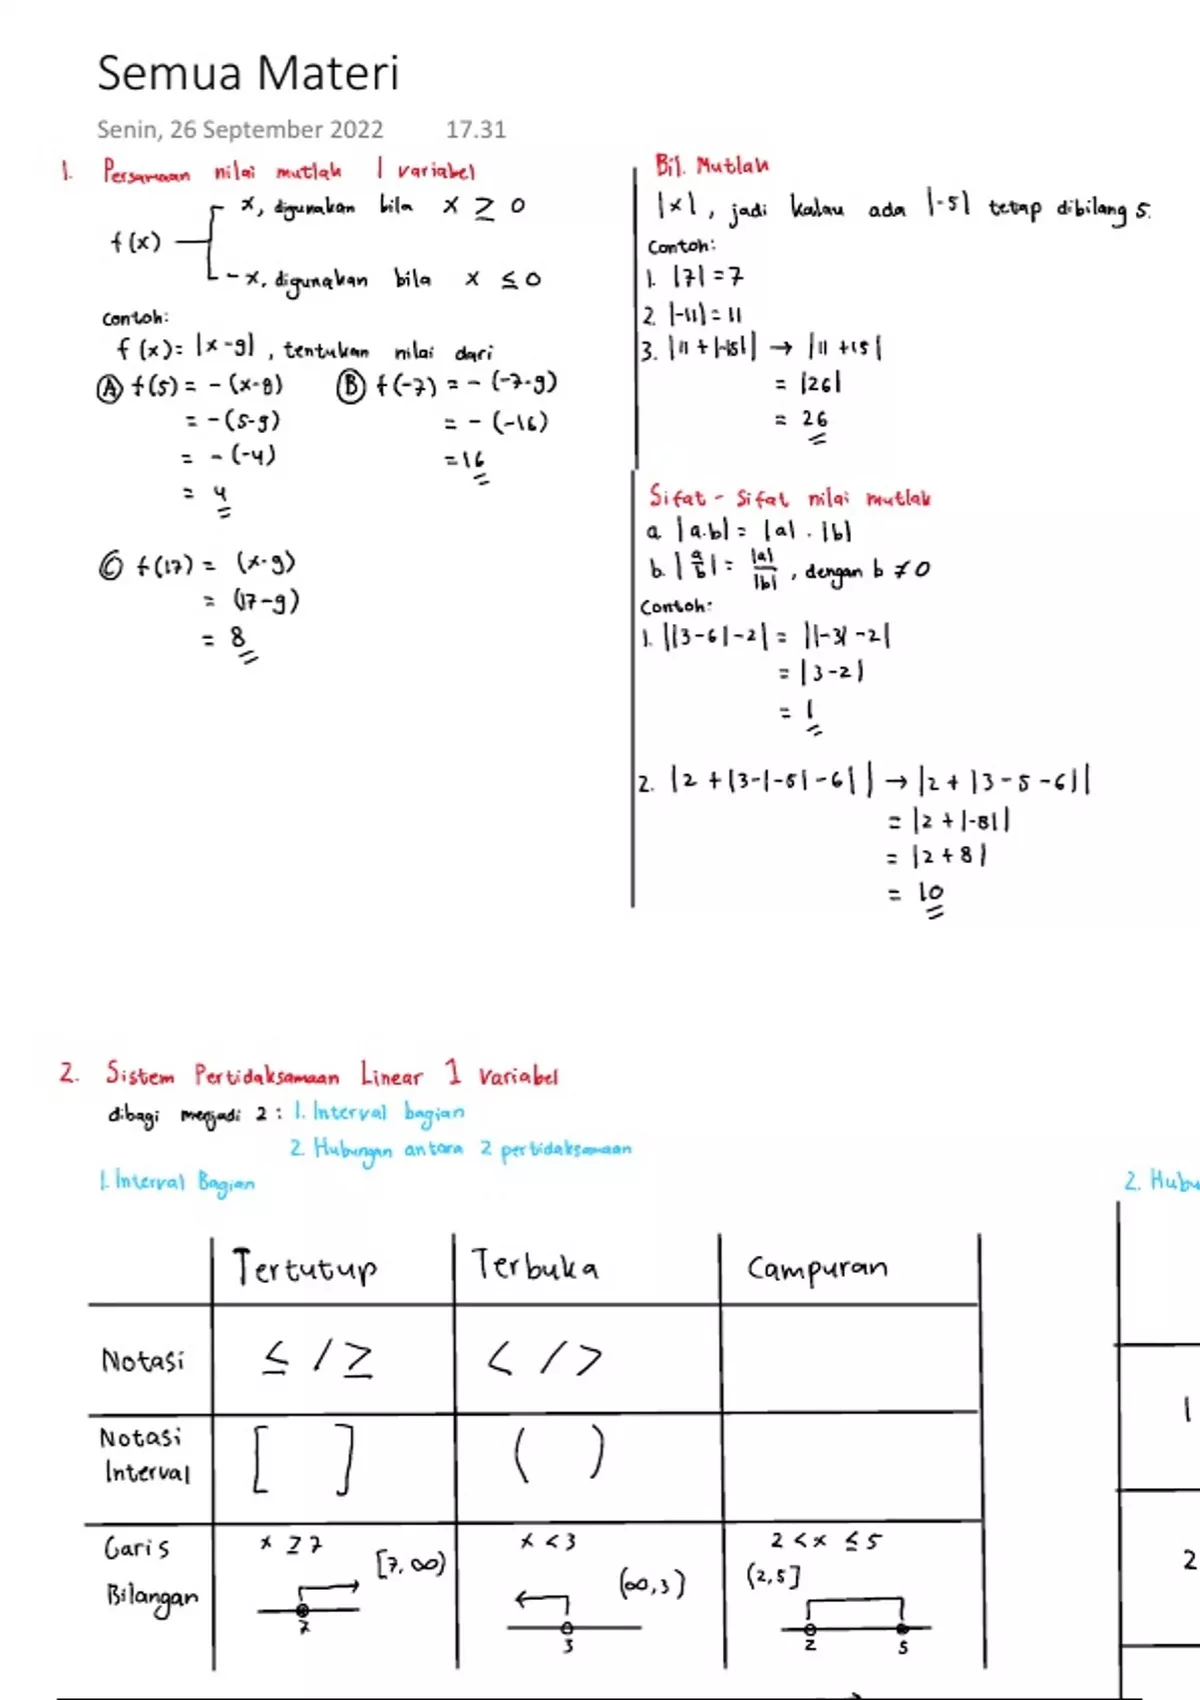 Semua Materi
Senin, 26 September 2022 17.31
1. Persamaan nilai mutlak 1 variabel
f(x)
x, digunakan bila x ≥ 0
-x, digunakan bila x ≤ 0
Contoh:
f(x) = |x-9|, tentukan nilai dari
A f(5) = -(x-9)
= -(5-9)
= -(-4)
= 4
B f(-7) = -(-7-9)
= -(-16)
= 16
C f(17) = (x-9)
= (17-9)
= 8
Bil. Mutlak
|x|, jadi kalau ada |-5| tetap dibilang 5.
Contoh:
1. |7| = 7
2. |-11| = 11
3. |11 + |-15|| → |11 + 15|
= |26|
= 26
Sifat - Sifat nilai mutlak
a. |a.b| = |a| . |b|
b. |a/b| = |a|/|b|, dengan b ≠ 0
Contoh:
1. ||3-6|-2| = ||-3|-2|
= |3-2|
= 1
2. |2 + |3-|-5|-6|| → |2 + |3-5-6||
= |2 + |-8||
= |2+8|
= 10
2. Sistem Pertidaksamaan Linear 1 variabel
dibagi menjadi 2 : 1. Interval bagian
2. Hubungan antara 2 pertidaksamaan
1. Interval Bagian
Tertutup Terbuka Campuran
Notasi ≤ / ≥ < / >
Notasi Interval [ ] ( )
Garis Bilangan
x ≥ 7
[7, ∞)
7
x < 3
(∞, 3)
3
2 < x ≤ 5
(2, 5]
2 5
2. Hubu
1
2